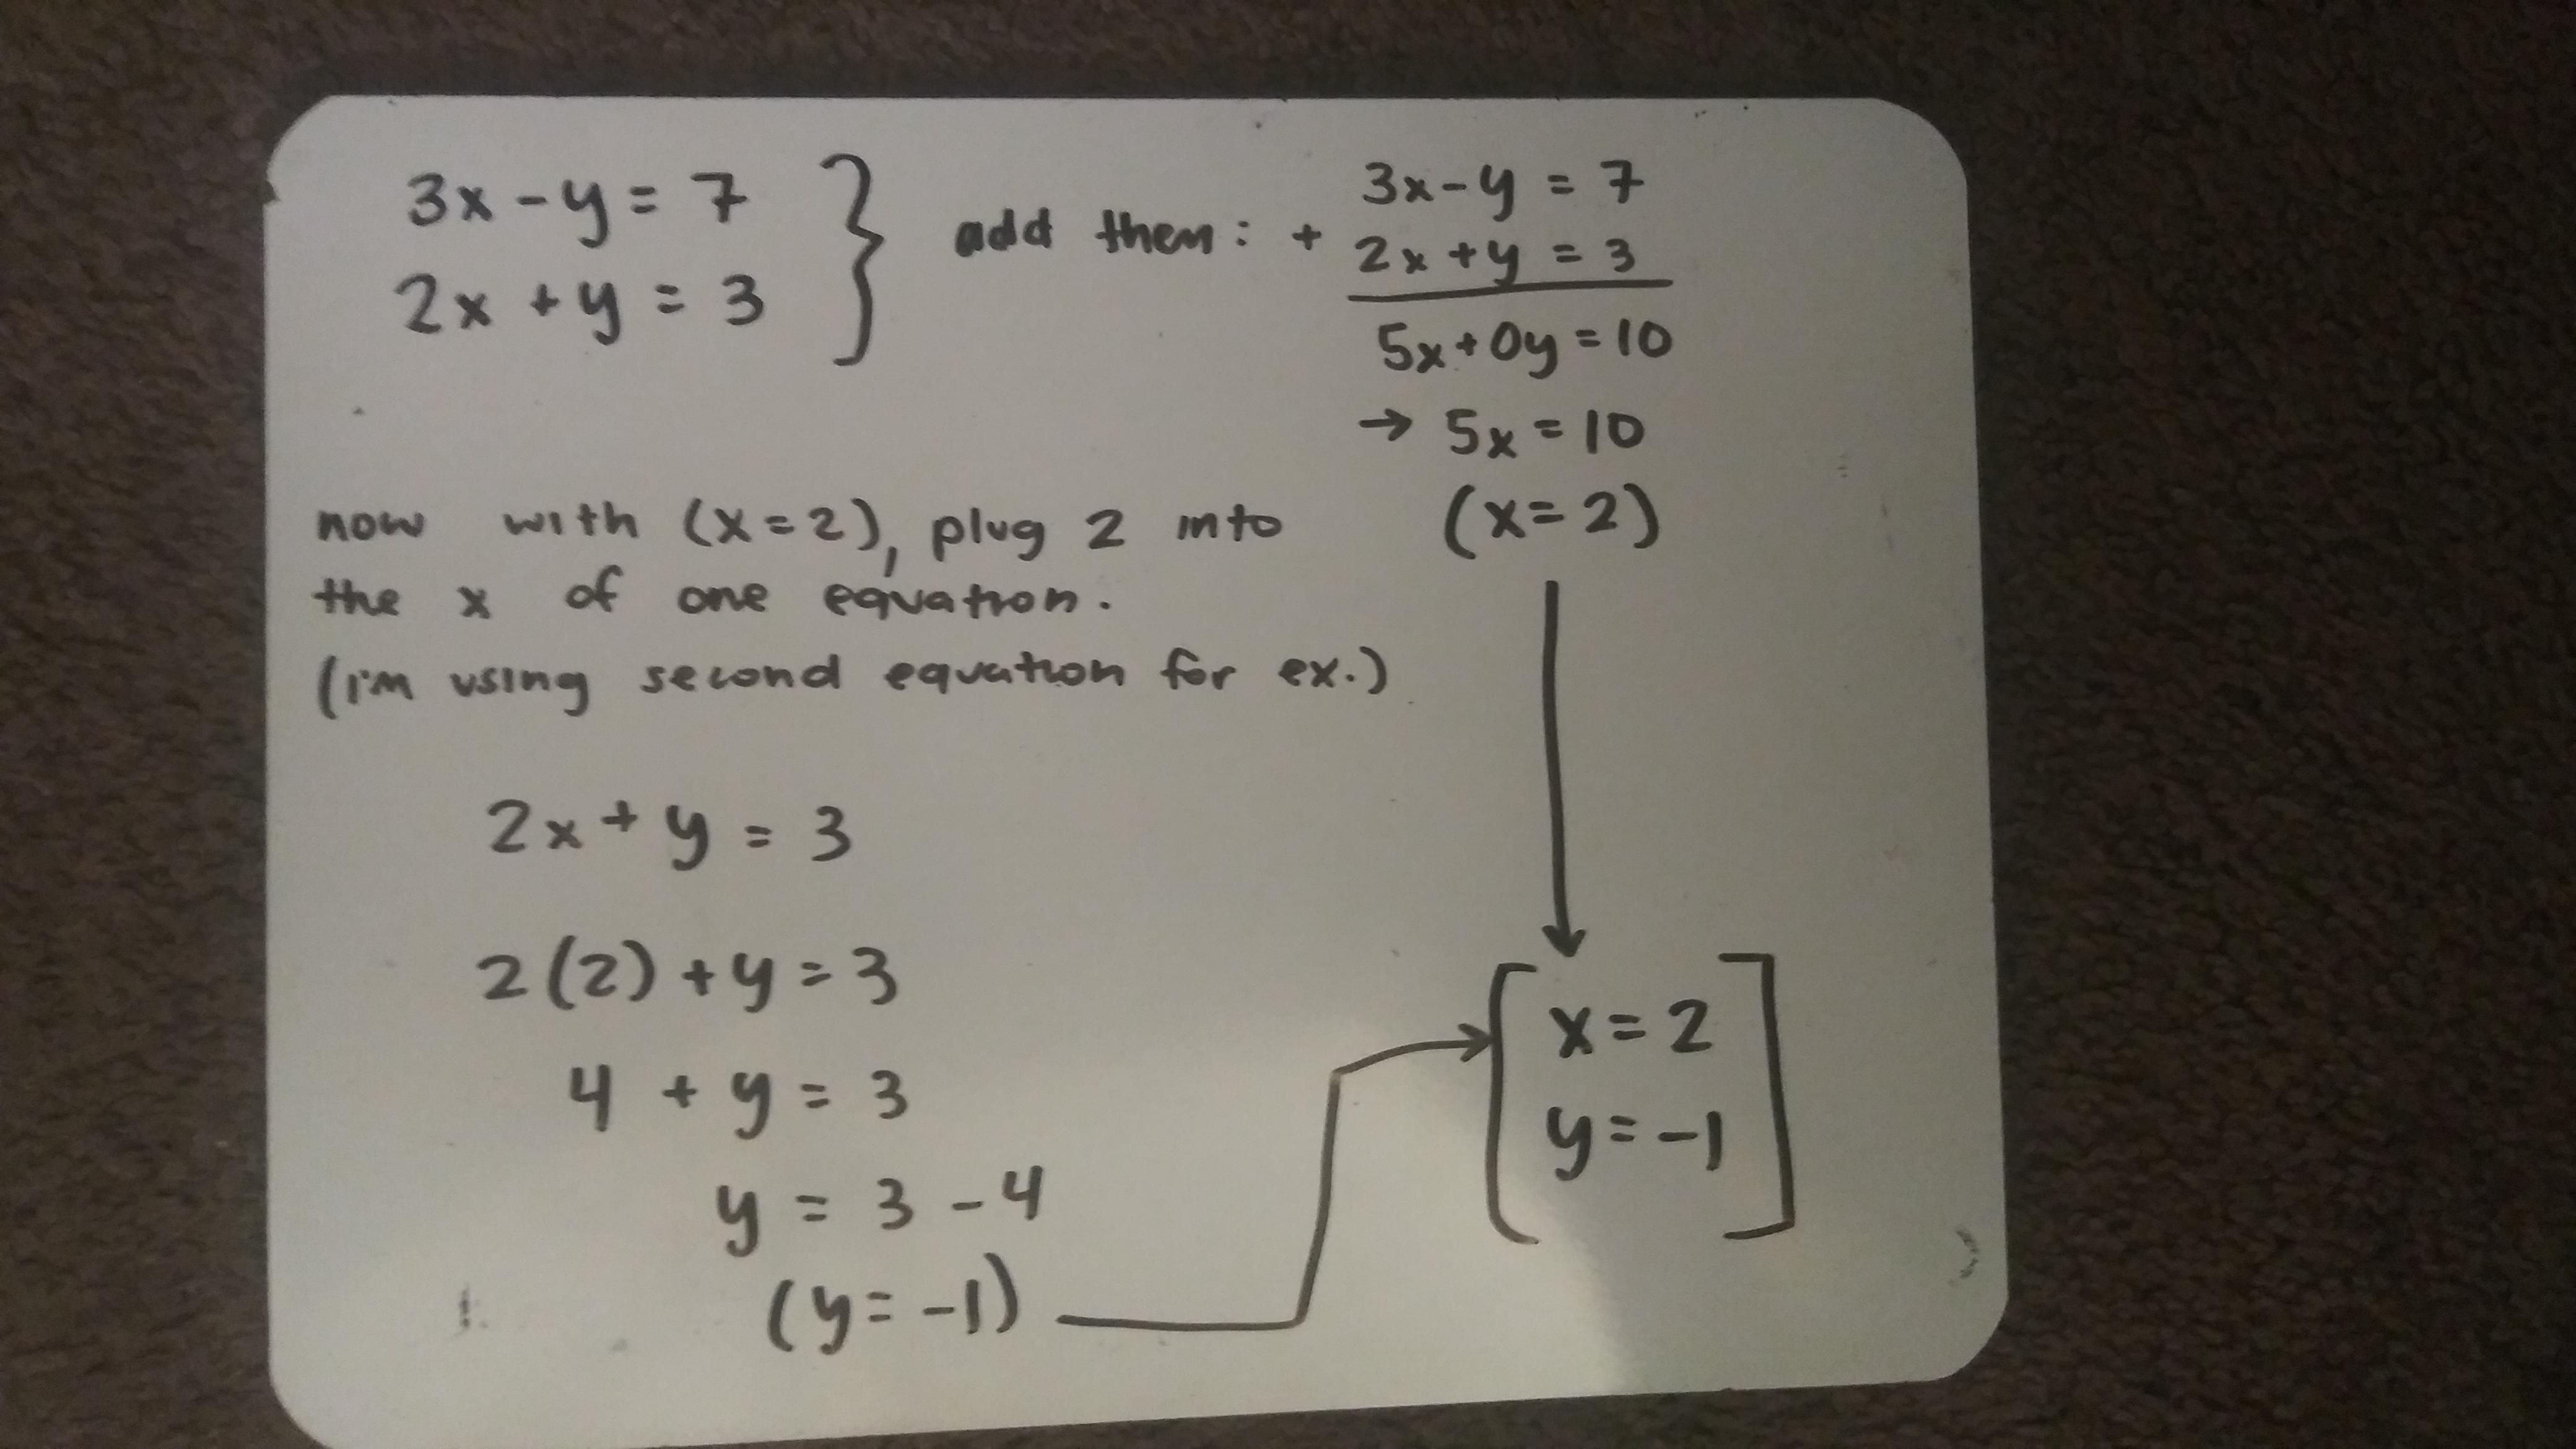 3x - y = 7
2x + y = 3
add them: +
3x - y = 7
2x + y = 3
5x + 0y = 10
→ 5x = 10
(x = 2)
now with (x = 2), plug 2 into
the x of one equation.
(i'm using second equation for ex.)
2x + y = 3
2(2) + y = 3
4 + y = 3
y = 3 - 4
(y = -1)
x = 2
y = -1